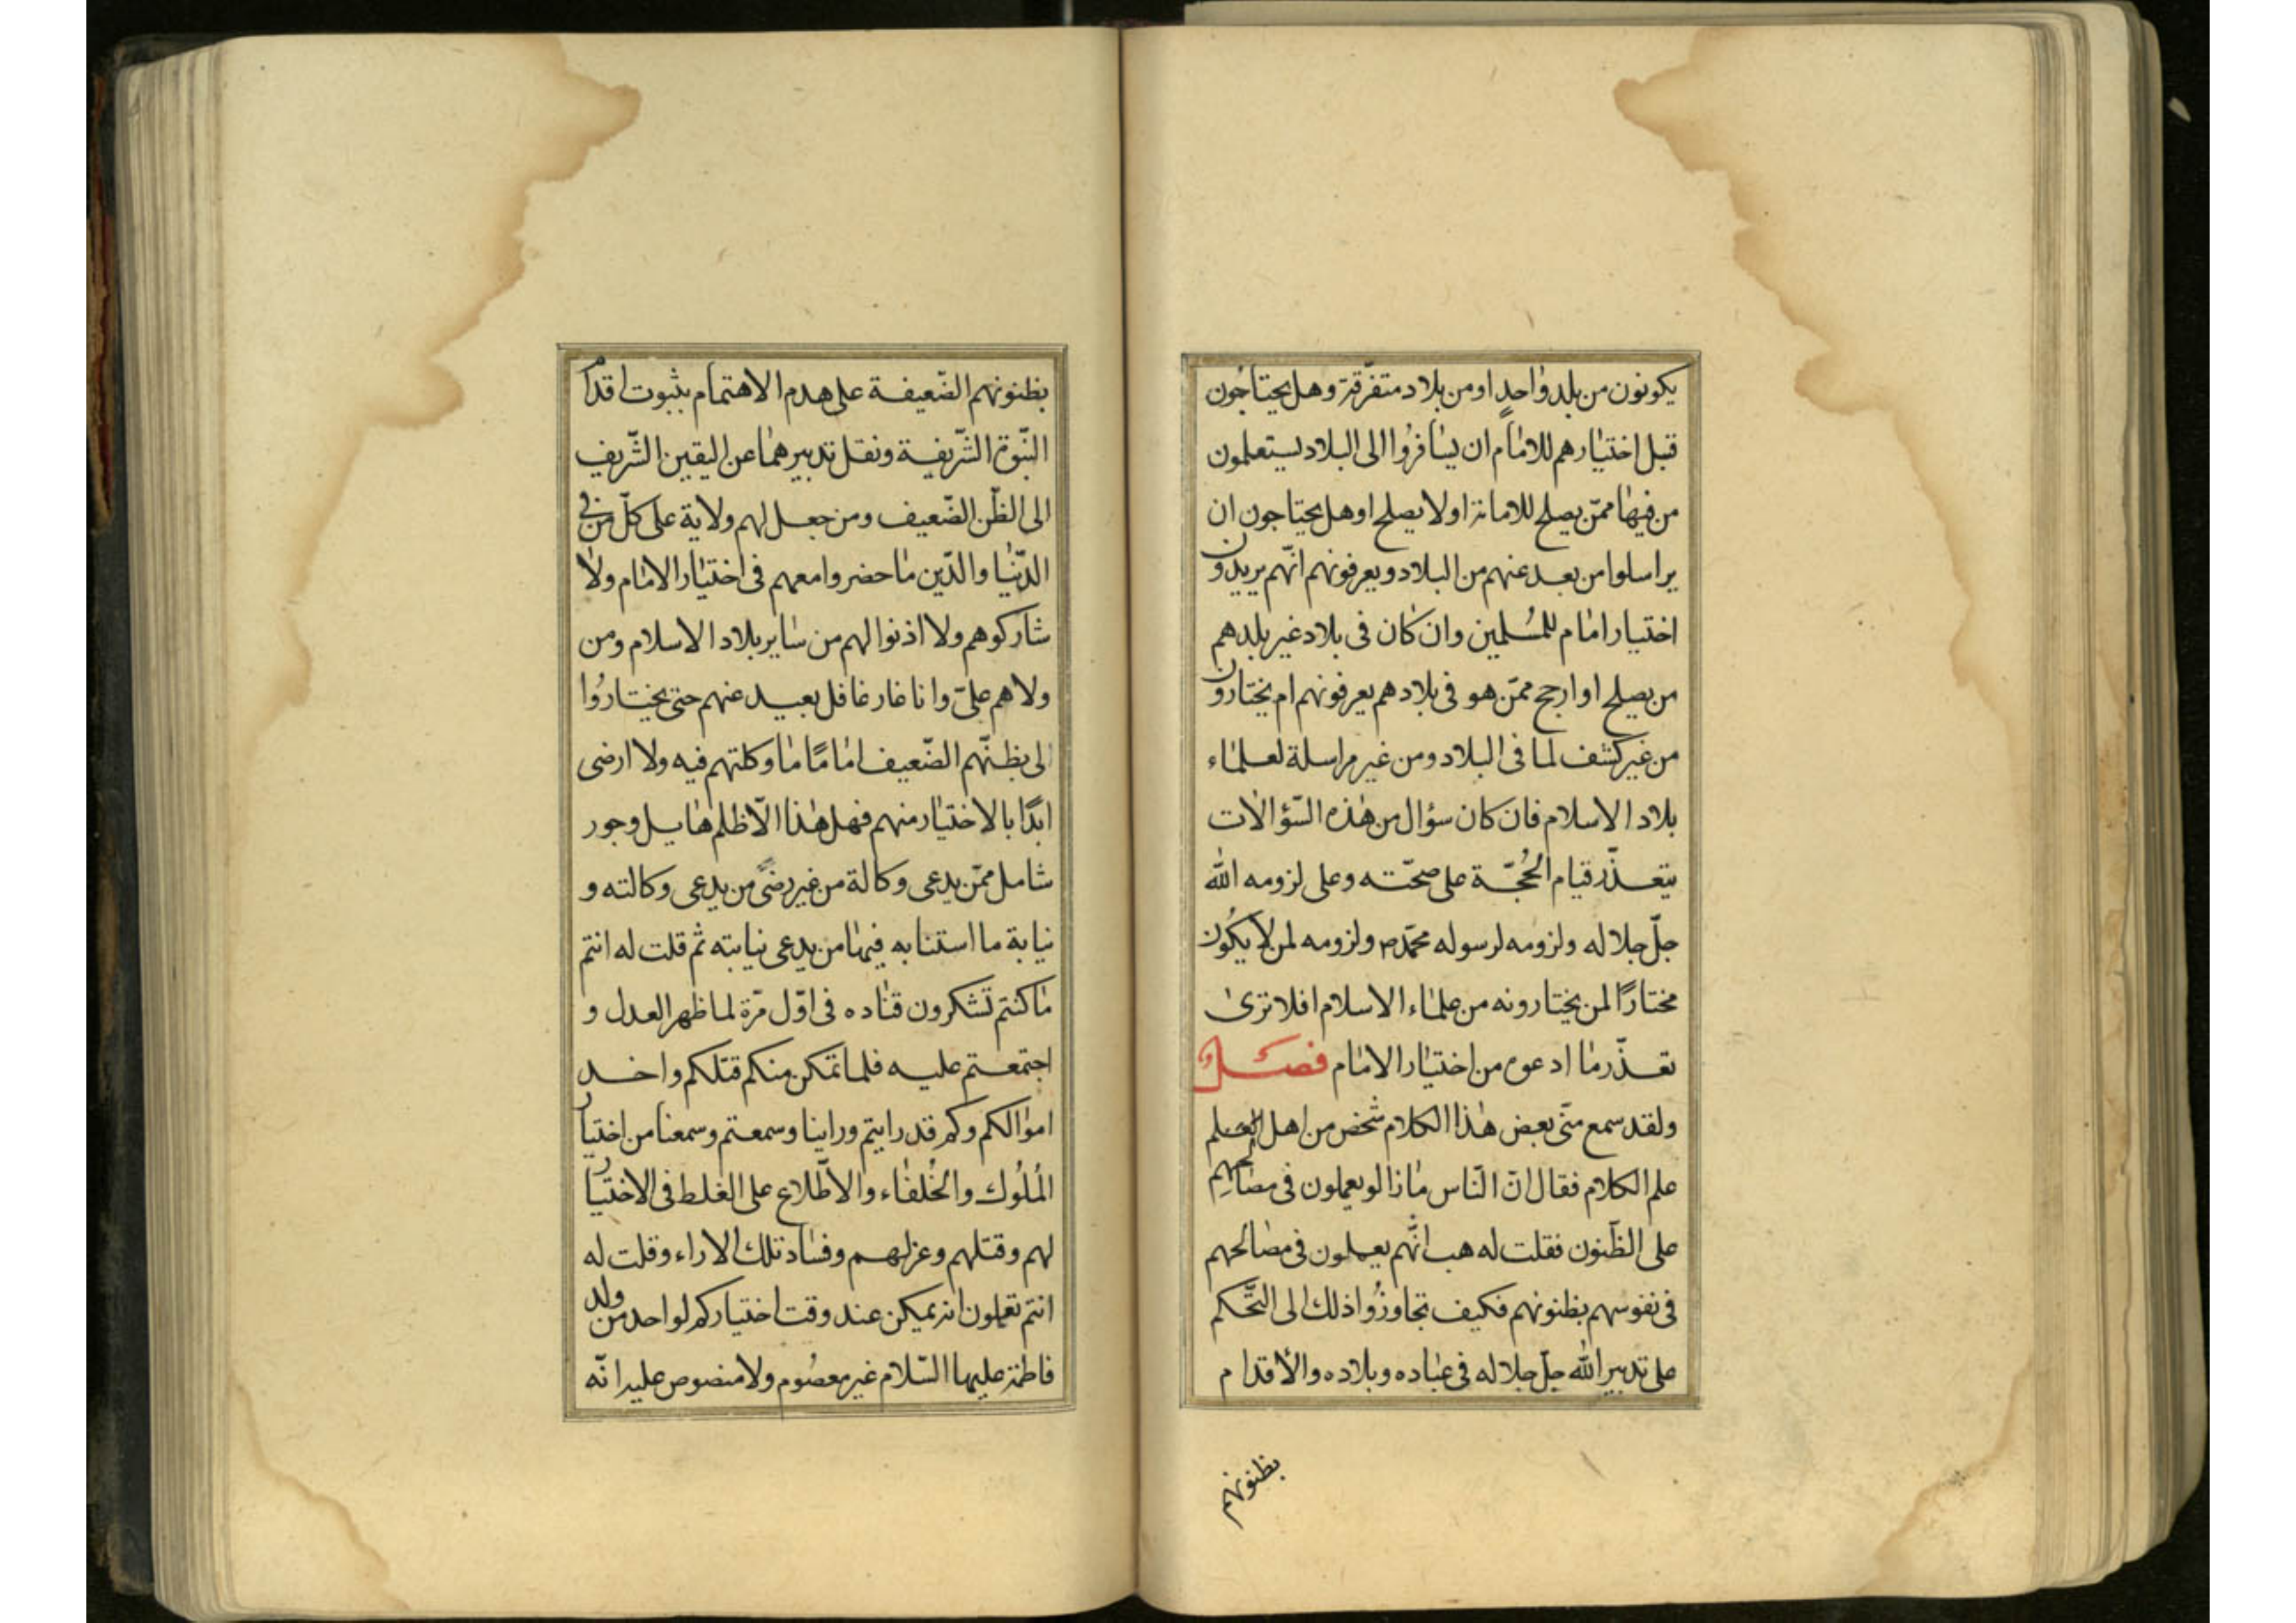 يكونون من بلد واحدٍ او من بلاد متفرّقة وهل يحتاجون
قبل اختيارهم للامام ان يسافرُوا الى البلاد ليستعلمون
من فيها ممّن يصلح للامانة او لا يصلح او هل يحتاجون ان
يراسلوا من بعد عنهم من البلاد ويعرفونهم انّهم يريدون
اختيار امام للمُسلمين وان كان فى بلاد غير بلدهم
من يصلح او ارجح ممّن هو فى بلادهم يعرفونهم ام يختارون
من غير كشف لما فى البلاد ومن غير مراسلة لعلماء
بلاد الاسلام فان كان سؤال من هذه السّؤالات
يتعذّر قيام الحُجّة على صحّته وعلى لزومه الله
جلّ جلاله ولزومه لرسوله محمّد ص ولزومه لمن لا يكُون
مختارًا لمن يختارونه من علماء الاسلام افلا ترى
تعذّر ما ادعوه من اختيار الامام فصل
ولقد سمع منّى بعض هذا الكلام شخص من اهل العلم
علم الكلام فقال انّ النّاس مازالو يعملون فى مصالحهم
على الظّنون فقلت له هب انّهم يعملون فى مصالحهم
فى نفوسهم بظنونهم فكيف تجاوزُوا ذلك الى التّحكم
على تدبير الله جلّ جلاله فى عباده وبلاده والأقدام
بظنونهم
بظنونهم الضّعيفة على هدم الاهتمام بثبوت اقدام
النّبوّة الشّريفة ونقل تدبيرهما عن اليقين الشّريف
الى الظّن الضّعيف ومن جعل لهم ولاية على كلّ من فى
الدّنيا والدّين ما حضروا معهم فى اختيار الامام ولا
شاركوهم ولا اذنوا لهم من ساير بلاد الاسلام ومن
ولاهم علىّ وانا غار غافل بعيد عنهم حتى يختارُوا
لى بظنّهم الضّعيف امامًا ما وكلتهم فيه ولا ارضى
ابدًا بالاختيار منهم فهل هذا الّا ظلم هايل وجور
شامل ممّن يدعى وكالة من غير رضىً من يدعى وكالته و
نيابة ما استنابه فيها من يدعى نيابته ثم قلت له انتم
ما كنتم تشكرون قناده فى اوّل مرّة لما ظهر العدل و
اجتمعتم عليه فلما تمكن منكم قتلكم واخد
اموالكم وكم قد رايتم وراينا وسمعتم وسمعنا من اختيار
المُلُوك والخُلفاء والاطّلاع على الغلط فى الاختيار
لهم وقتلهم وعزلهم وفساد تلك الاراء وقلت له
انتم تعلمون انه يمكن عند وقت اختياركم لواحد من ولد
فاطمة عليها السّلام غير معصُوم ولا منصوص عليه انّه